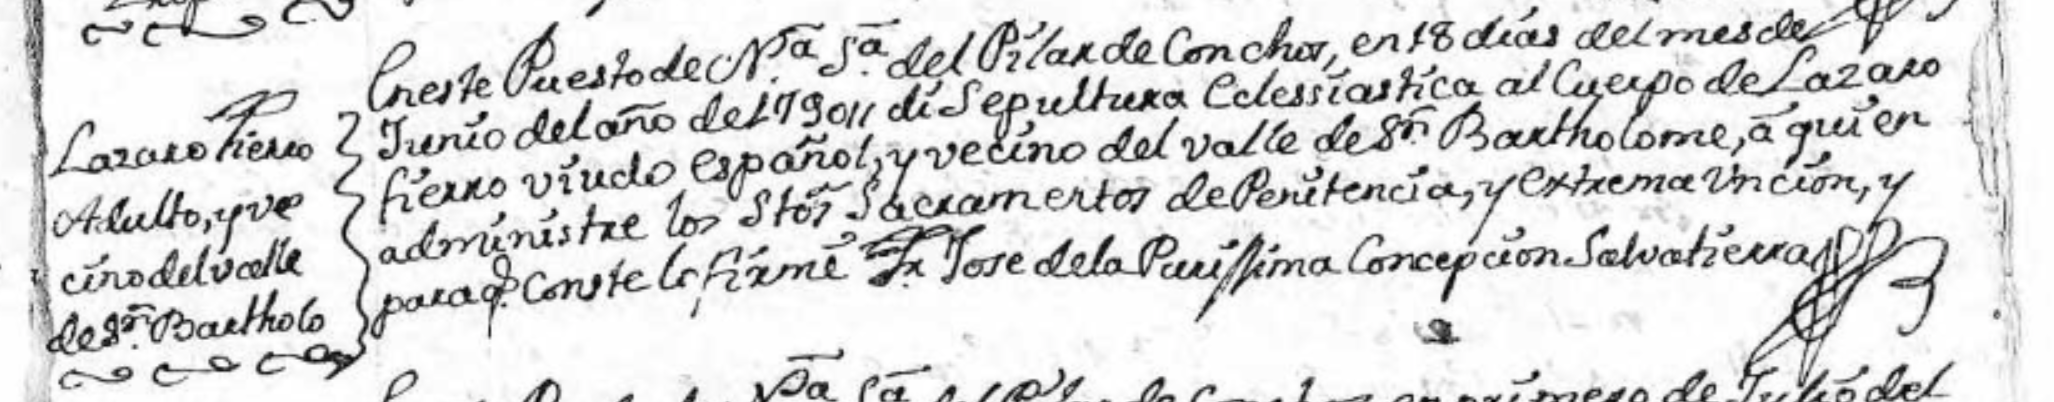 Lazaro fierro
Adulto, y ve
cino del valle
de Sn. Bartholo
En este Puesto de Nra. Sa. del Pilar de Conchos, en 18 dias del mes de
Junio del año de 1790,, di Sepultura Eclessiastica al Cuerpo de Lazaro
fierro viudo español, y vecino del valle de Sn. Bartholome, à quien
administre los Stos Sacramentos de Penitencia, y extrema Vncion, y
para q. Conste lo firmè Fr. Jose de la Purissima Concepcion Salvatierra
En este Puesto de Nra. Sa. del Pilar de Conchos en primero de Julio del